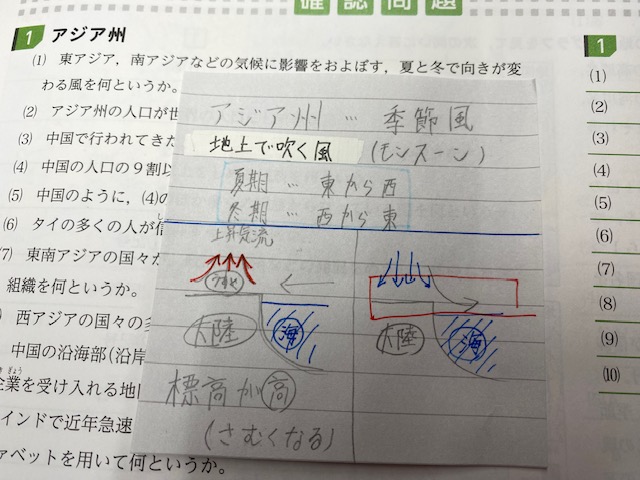 確認問題
1 アジア州
(1) 東アジア，南アジアなどの気候に影響をおよぼす，夏と冬で向きが変
わる風を何というか。
(2) アジア州の人口が世
(3) 中国で行われてきた
(4) 中国の人口の９割以
(5) 中国のように，(4)の
(6) タイの多くの人が信
(7) 東南アジアの国々か
組織を何というか。
西アジアの国々の多
中国の沿海部(沿岸
企業を受け入れる地
インドで近年急速
ァベットを用いて何というか。
アジア州 … 季節風
地上で吹く風 (モンスーン)
夏期 … 東から西
冬期 … 西から東
上昇気流
大陸
海
標高が高
(さむくなる)
大陸
海
1
(1)
(2)
(3)
(4)
(5)
(6)
(7)
(8)
(9)
(10)